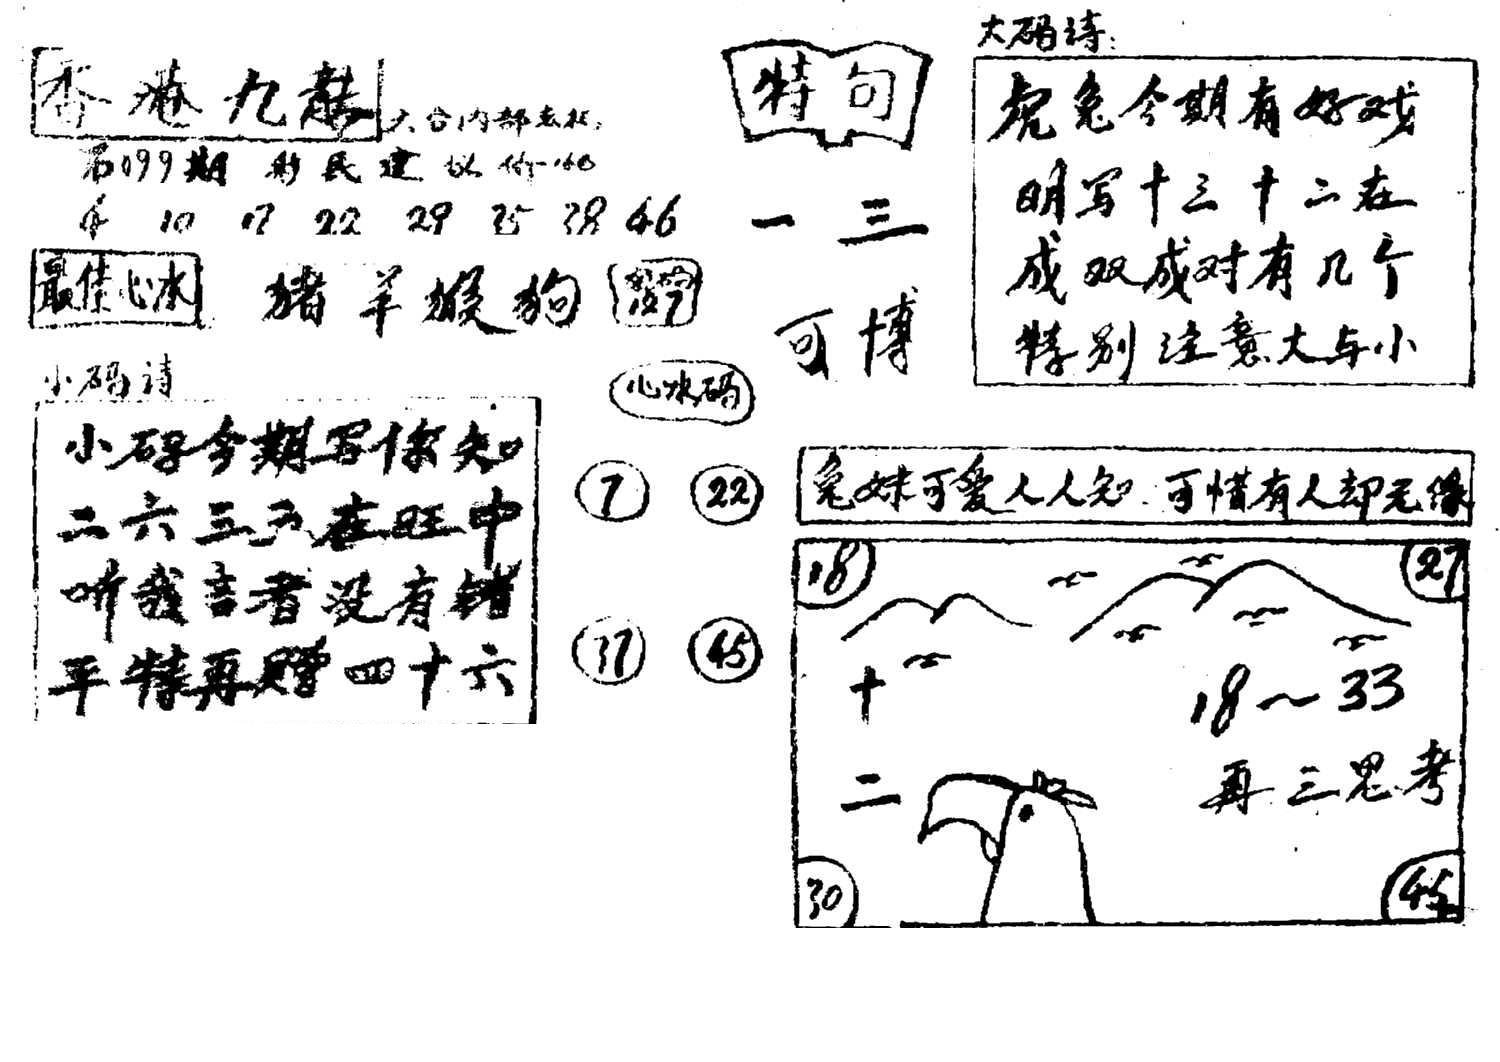 香港九龍
六合内部
099期 彩民建议
4 10 17 22 29 35 38 46
最佳心水
猪羊猴狗
小码诗
小码今期写你知
二六三六在旺中
听我言者没有错
平特再赠四十六
特句
一三
可博
心水码
7 22
37 45
大码诗:
虎兔今期有好戏
明写十三十二在
成双成对有几个
特别注意大与小
兔妹可爱人人知 可惜有人却无缘
18 27
十
18~33
二
再三思考
30 45